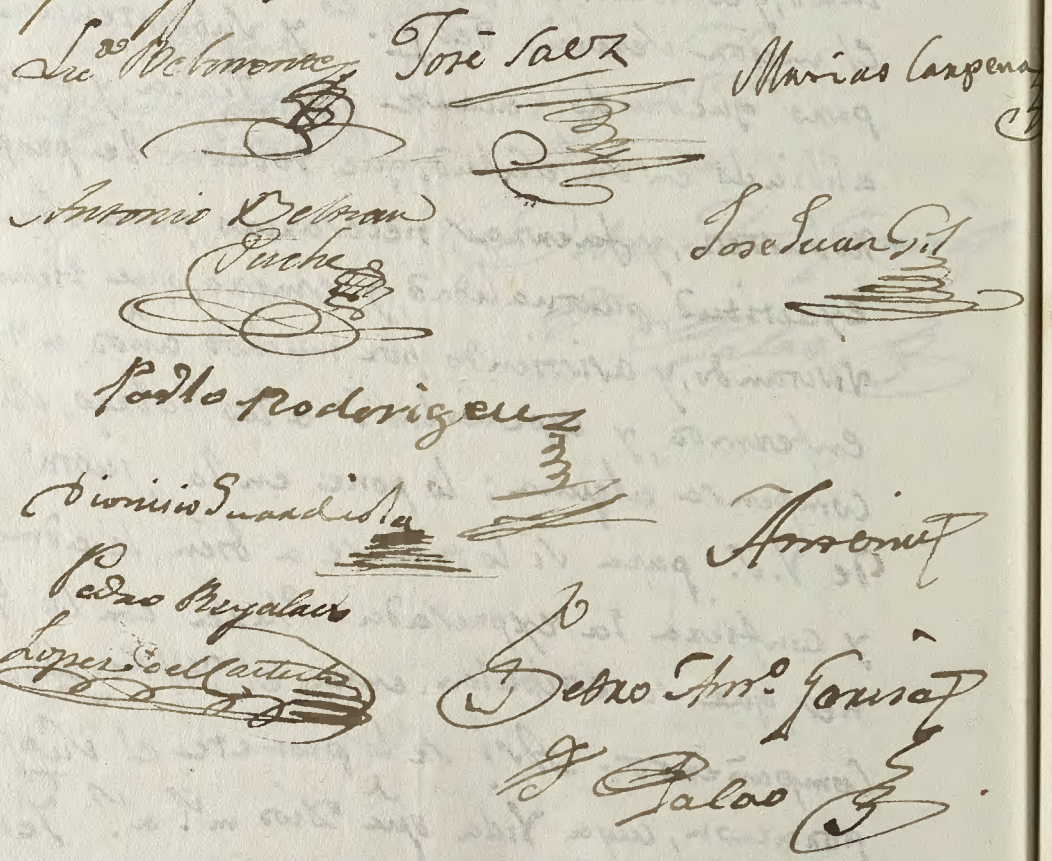 Licᵈᵒ Belmonte
José Saez
Matias Carpena
Antonio Beltran
Puche
Jose Juan Gil
Pablo Rodorigeuz
Dionisio Guardiola
Antonio
Pedro Regalado
Lopez del Castillo
Pedro Anᵗº Garcia
Palao